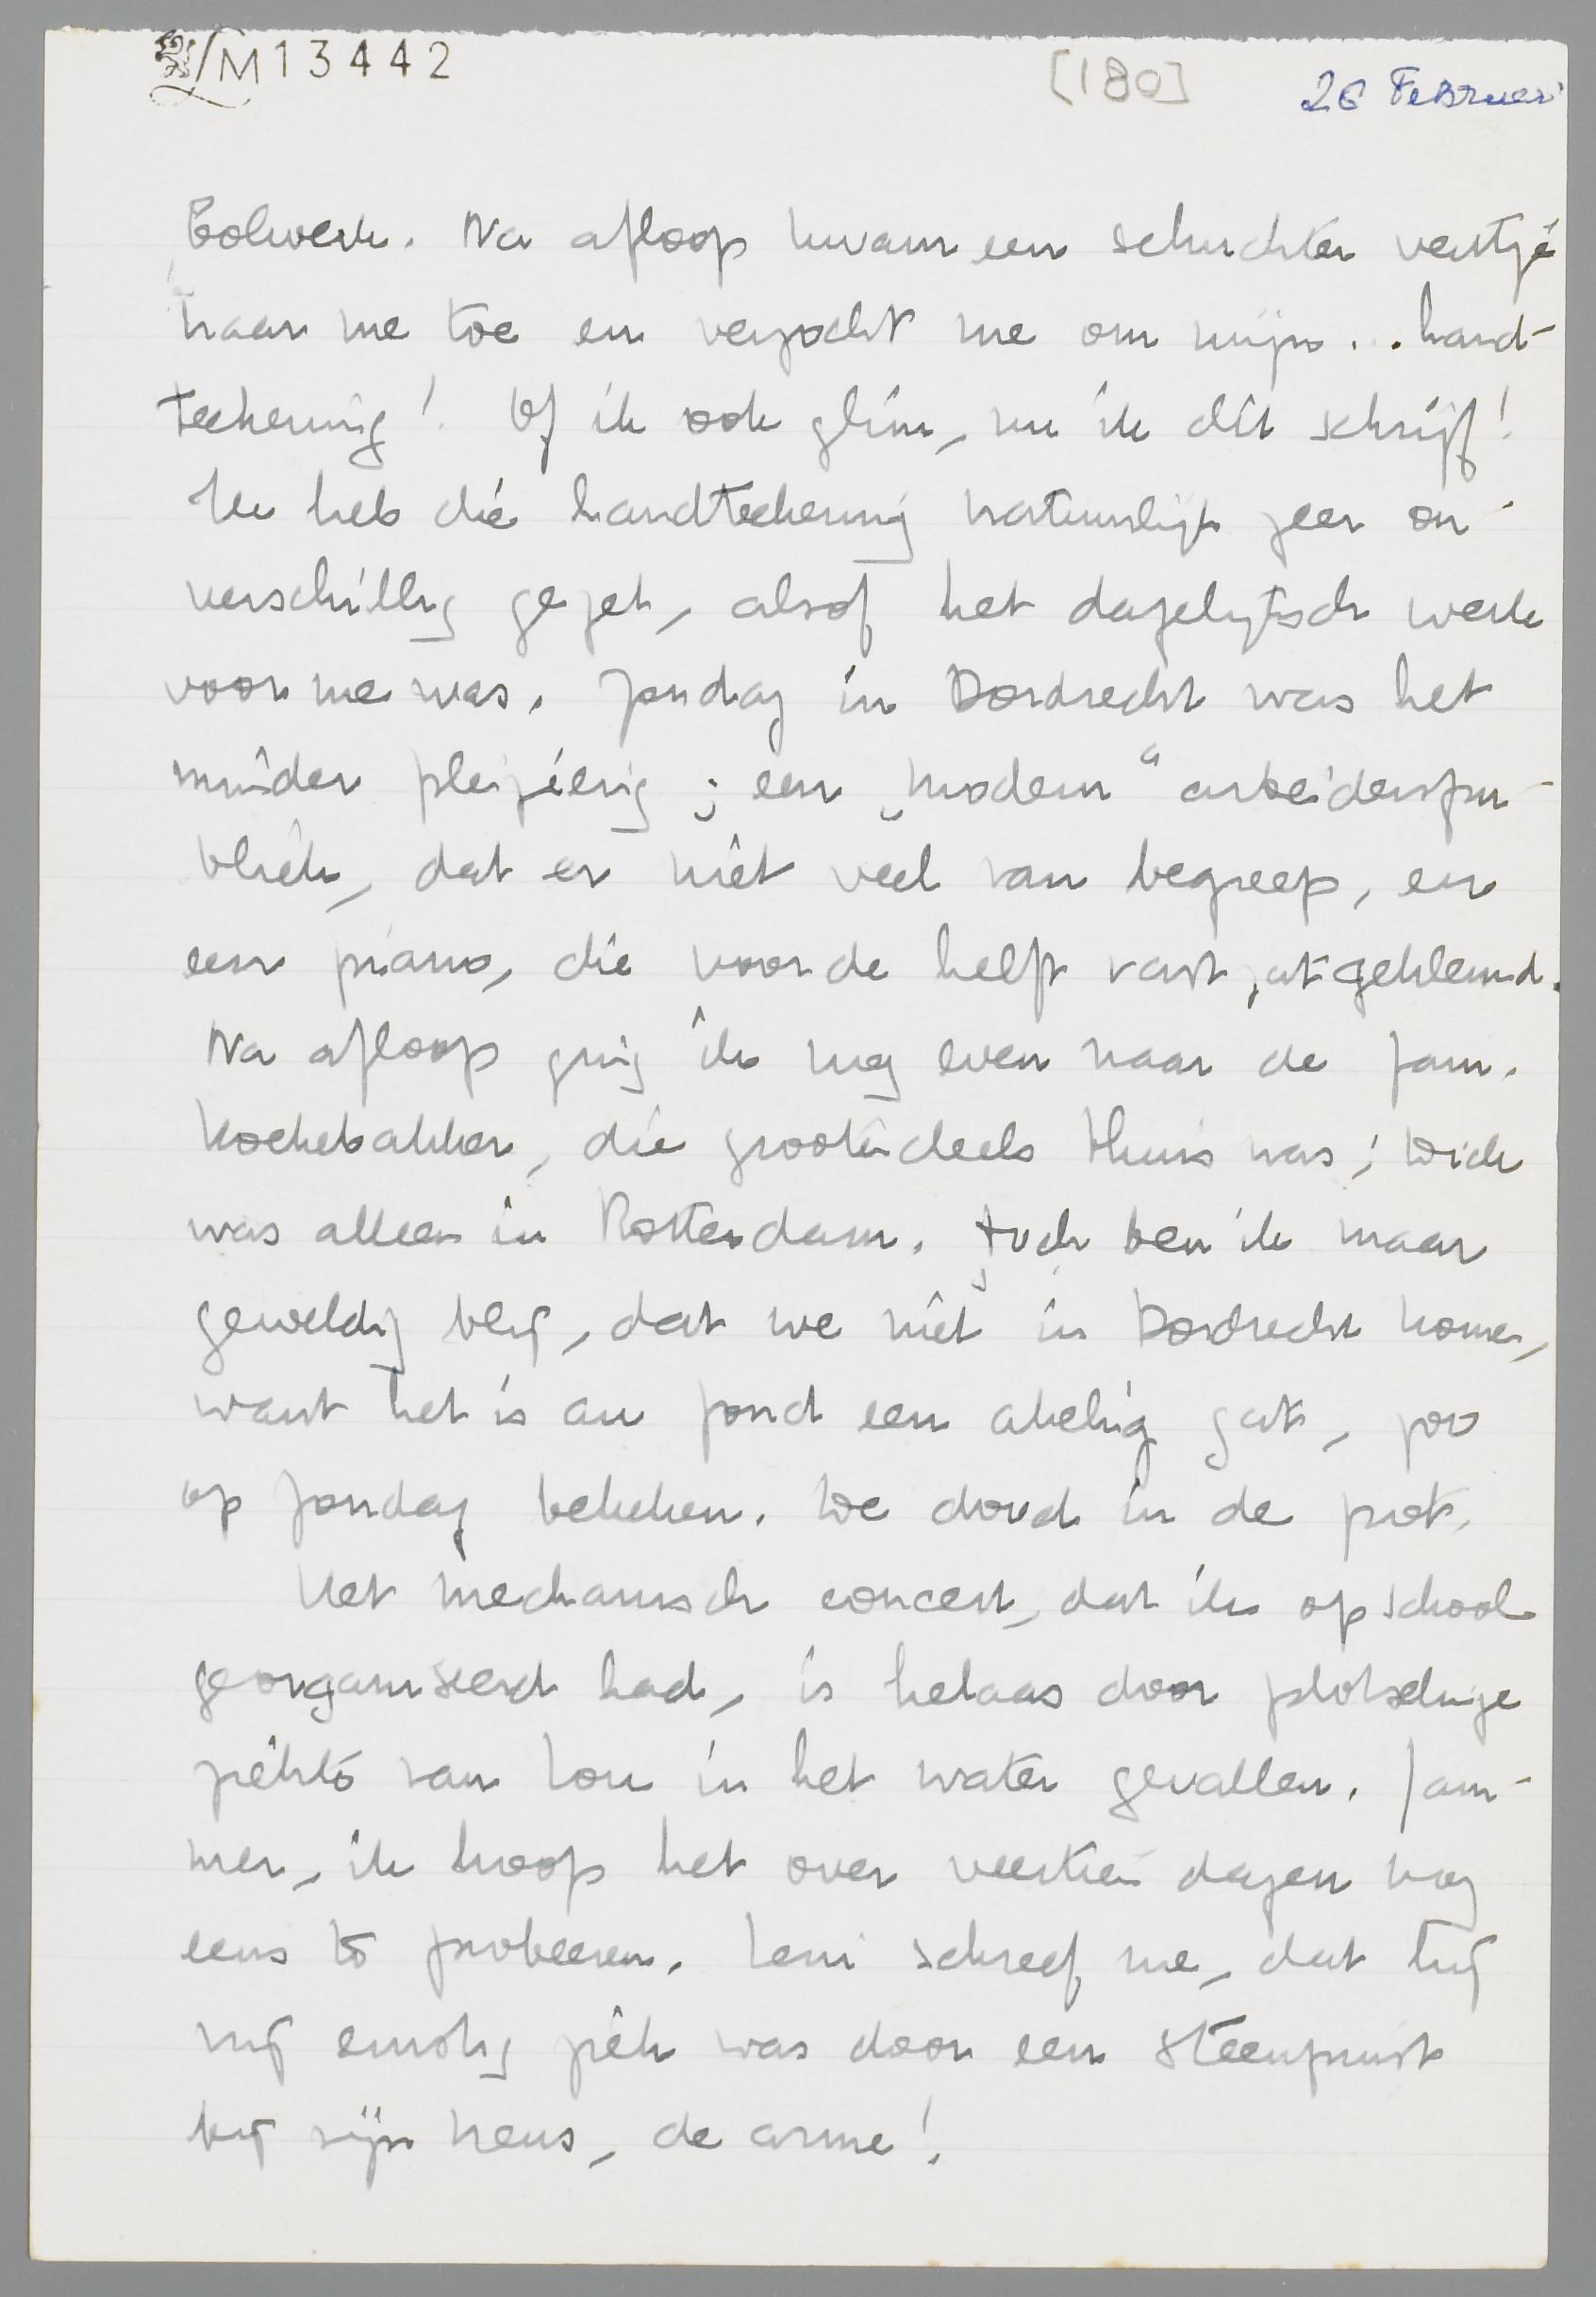 LM 13442 [180] 26 Februari
Bolwerk. Na afloop kwam een schuchter ventje
naar me toe en verzocht me om mijn... hand-
teekening! Of ik ook glim, nu ik dit schrijf!
Ik heb die handteekening natuurlijk zeer on-
verschillig gezet, alsof het dagelijksch werk
voor me was. Zondag in Dordrecht was het
minder pleizierig; een „modern“ arbeiderspu-
bliek, dat er niet veel van begreep, en
een piano, die voor de helft vast zat geklemd.
Na afloop ging ik nog even naar de fam.
Koekebakker, die grootendeels thuis was; Wick
was alleen in Rotterdam. Toch ben ik maar
geweldig blij, dat we niet in Dordrecht wonen,
want het is au fond een akelig gat, zoo
op Zondag bekeken. We dood in de pot.
Het mechanisch concert, dat ik op school
georganiseerd had, is helaas door plotselinge
ziekte van Lou in het water gevallen. Jam-
mer, ik hoop het over veertien dagen nog
eens te probeeren. Leni schreef me, dat hij
vrij ernstig ziek was door een steenpuist
bij zijn neus, de arme!